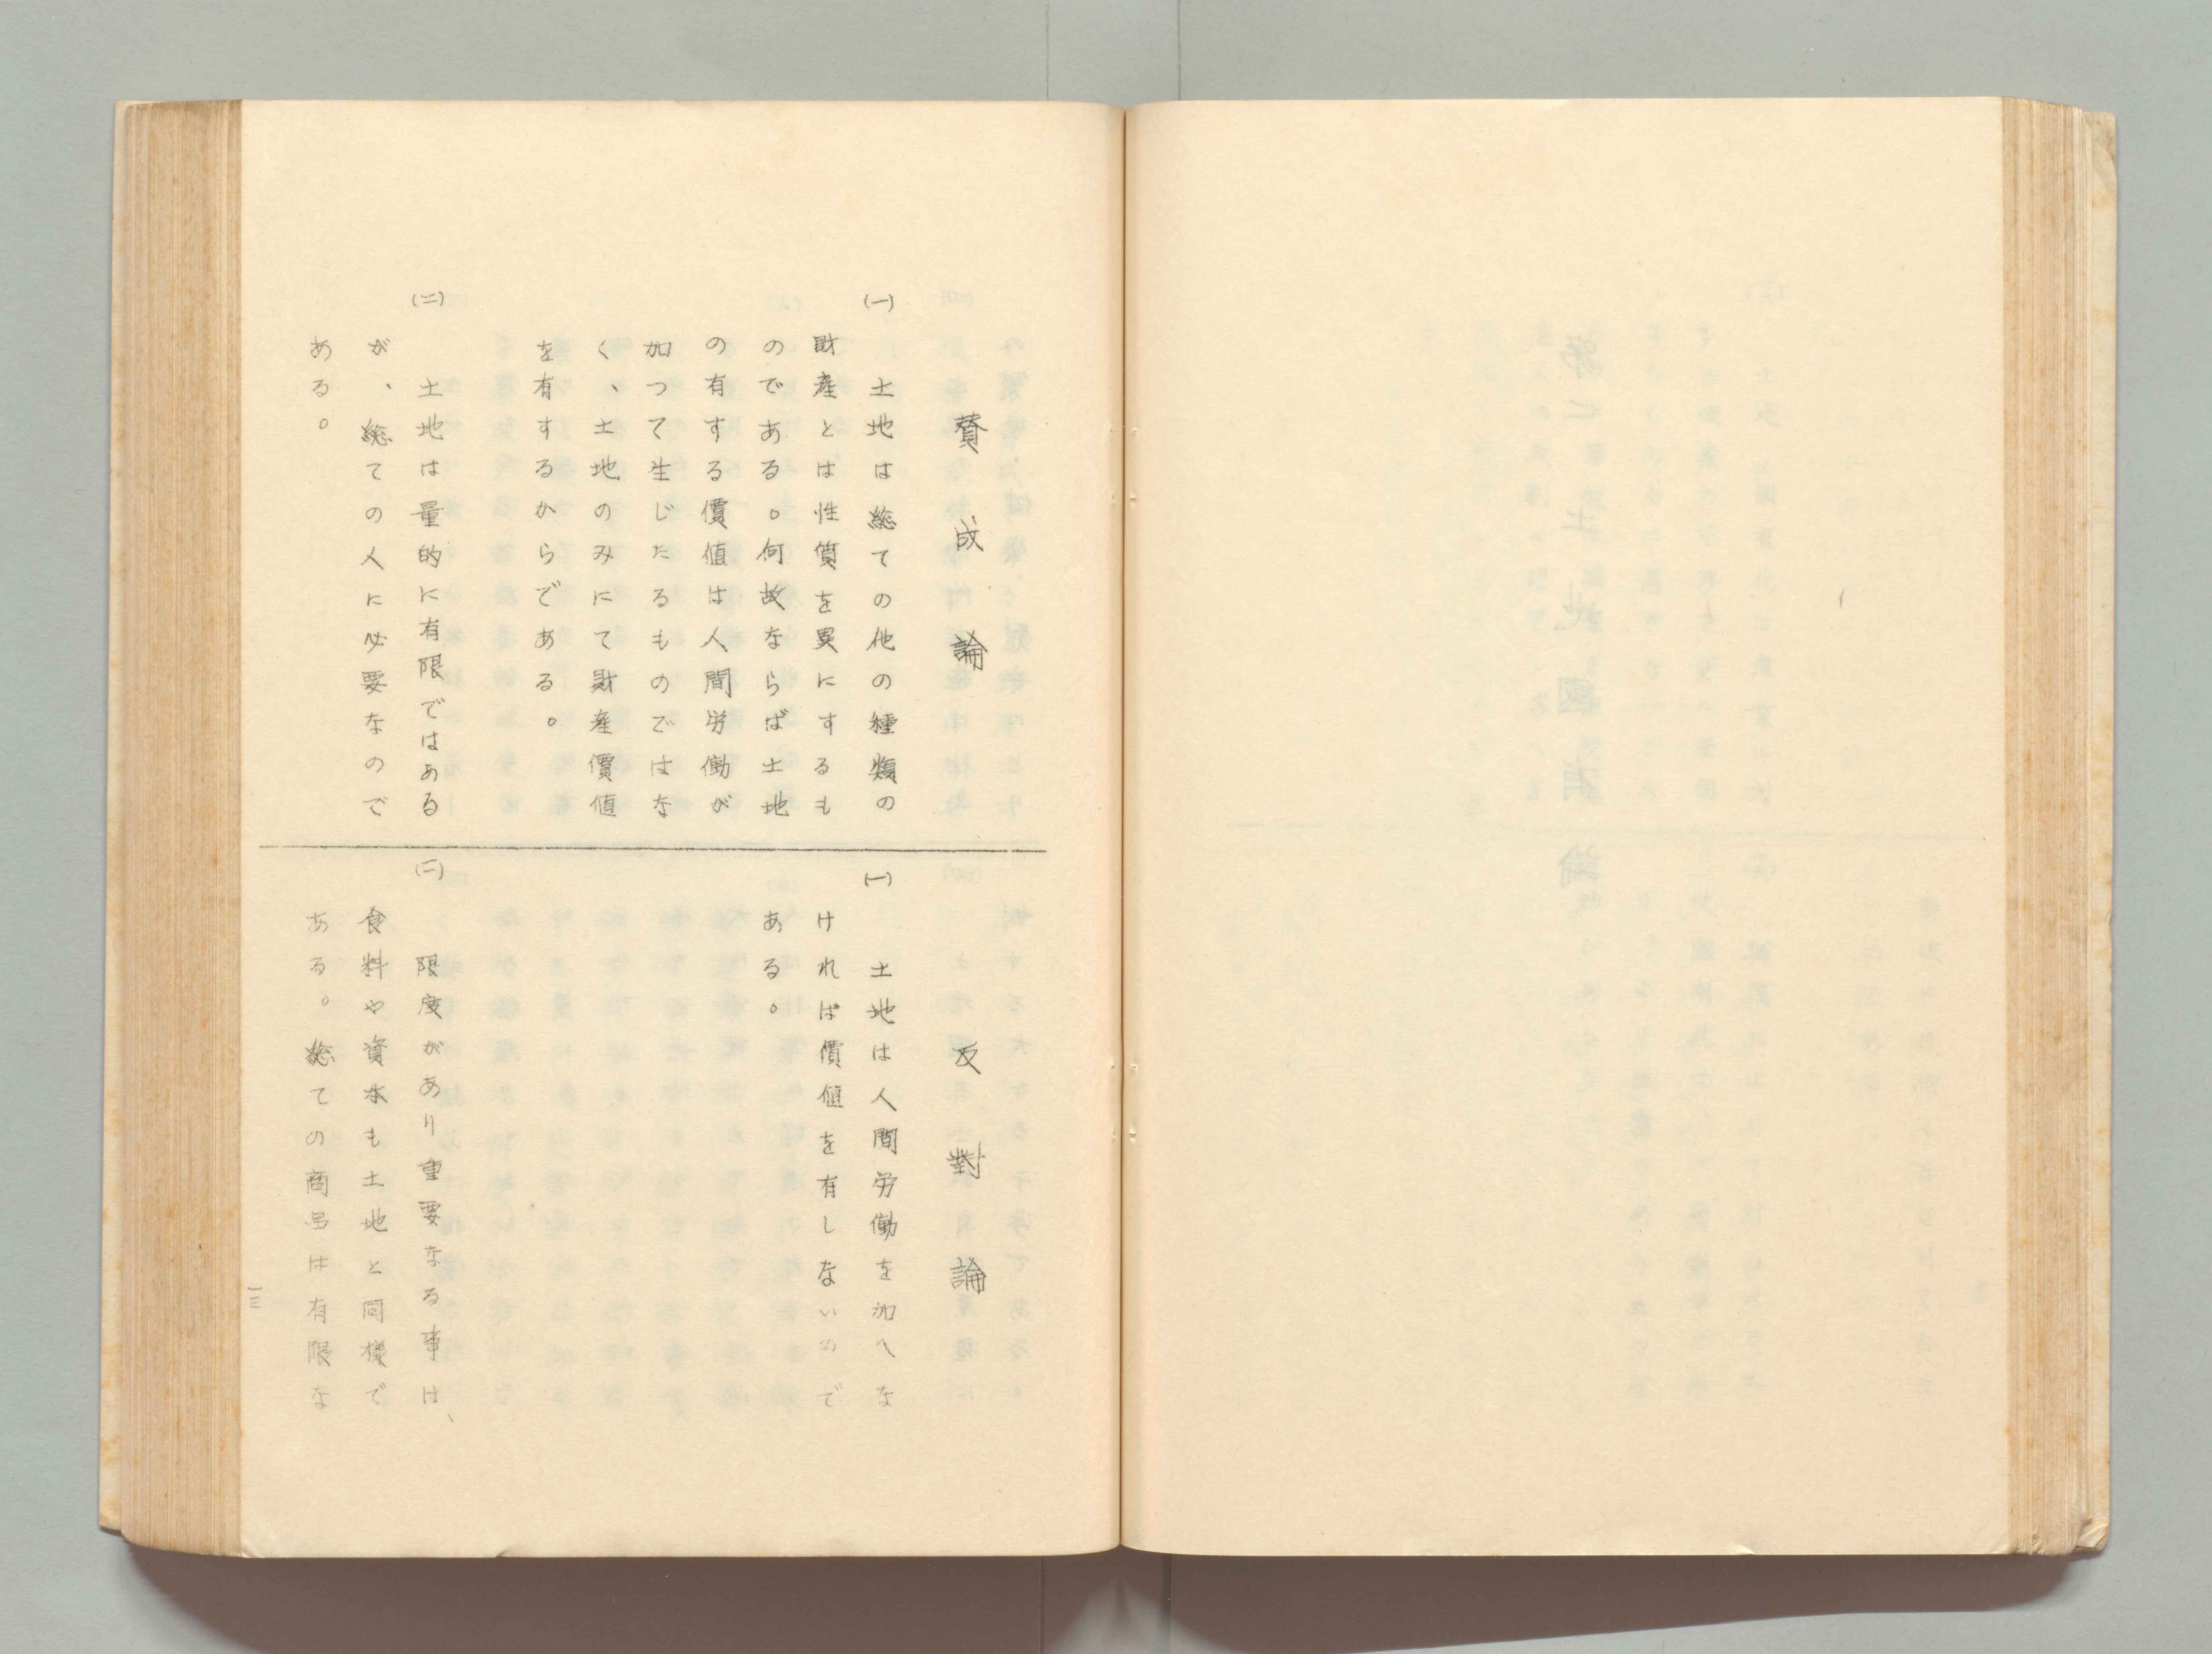 賛成論
(一) 土地は総ての他の種類の
財産とは性質を異にするも
のである。何故ならば土地
の有する價値は人間労働が
加つて生じたるものではな
く、土地のみにて財産價値
を有するからである。
(二) 土地は量的に有限ではある
が、総ての人に必要なので
ある。
反對論
(一) 土地は人間労働を加へな
ければ價値を有しないので
ある。
(二) 限度があり重要なる事は、
食料や資本も土地と同様で
ある。総ての商品は有限な